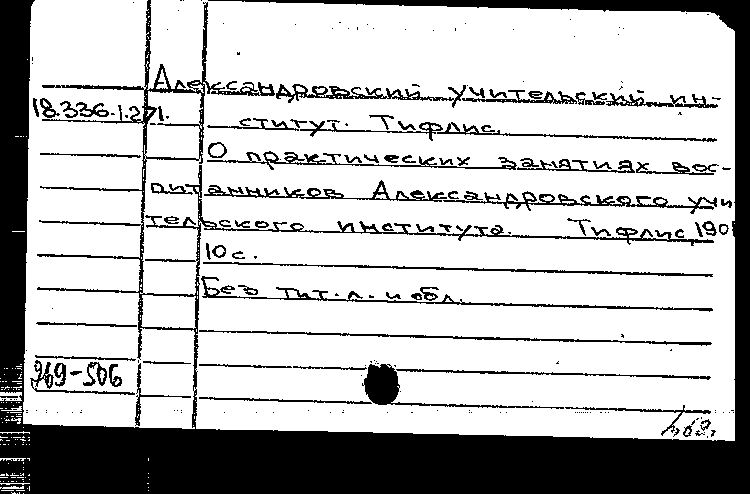 Александровский учительский ин-
18.336.1.271.
ститут. Тифлис.
О практических занятиях вос-
питанников Александровского учи
тельского института. Тифлис, 190
10 с.
Без тит. л. и обл.
969-506